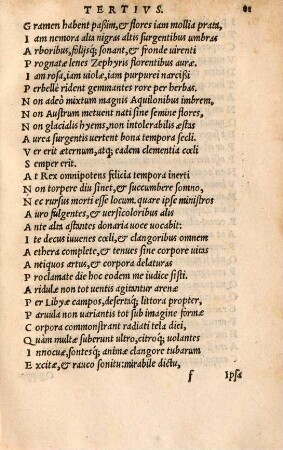 TERTIVS. 81
Gramen habent paßim, & flores iam mollia prata,
Iam nemora alta nigras altis surgentibus umbras
Arboribus, folijsq; sonant, & fronde uirenti
Prognatæ lenes Zephyris florentibus auræ.
Iam rosa, iam uiolæ, iam purpurei narcißi
Perbellè rident gemmantes rore per herbas.
Non adeò mixtum magnis Aquilonibus imbrem,
Non Austrum metuent nati sine semine flores,
Non glacialis hyems, non intolerabilis æstas
Aurea surgentis uertent bona tempora secli.
Ver erit æternum, atq; eadem clementia cœli
Semper erit.
At Rex omnipotens felicia tempora inerti
Non torpere diu sinet, & succumbere somno,
Nec rursus morti esse locum. quare ipse ministros
Auro fulgentes, & uersicoloribus alis
Ante alta astantes donaria uoce uocabit:
Ite decus iuuenes cœli, & clangoribus omnem
Aethera complete, & tenues sine corpore uitas
Antiquos artus, & corpora delaturas
Proclamate die hoc eodem me iudice sisti.
Aridulæ non tot uentis agitantur arenæ
Per Libyæ campos, desertaq; littora propter,
Paruula non uariantis tot sub imagine formæ
Corpora commonstrant radiati tela diei,
Quàm multæ suberunt ultro, citroq; uolantes
Innocuæ, sontesq; animæ clangore tubarum
Excitæ, & rauco sonitu: mirabile dictu,
f Ipsa